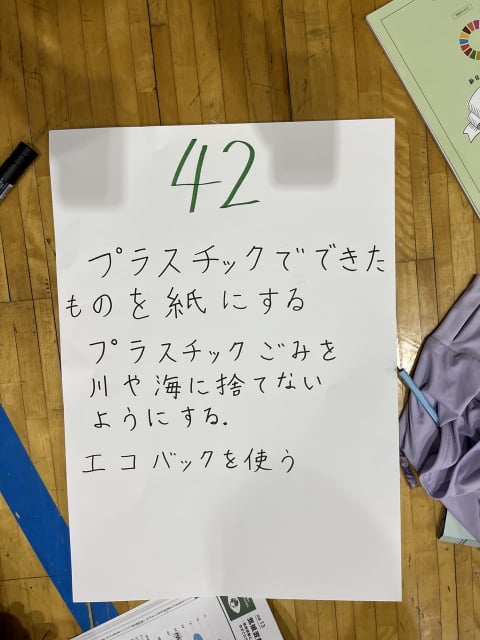 42
プラスチックでできた
ものを紙にする
プラスチックごみを
川や海に捨てない
ようにする.
エコバックを使う